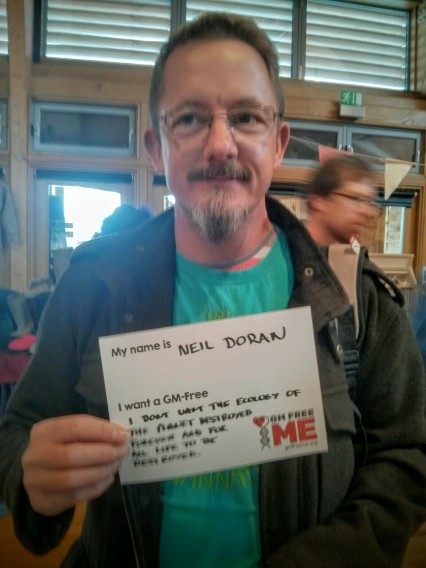 My name is NEIL DORAN
I want a GM-Free
I DONT WANT THE ECOLOGY OF
THE PLANET DESTROYED
FOREVER AND FOR
ALL LIFE TO BE
DESTROYED.
GM FREE
ME